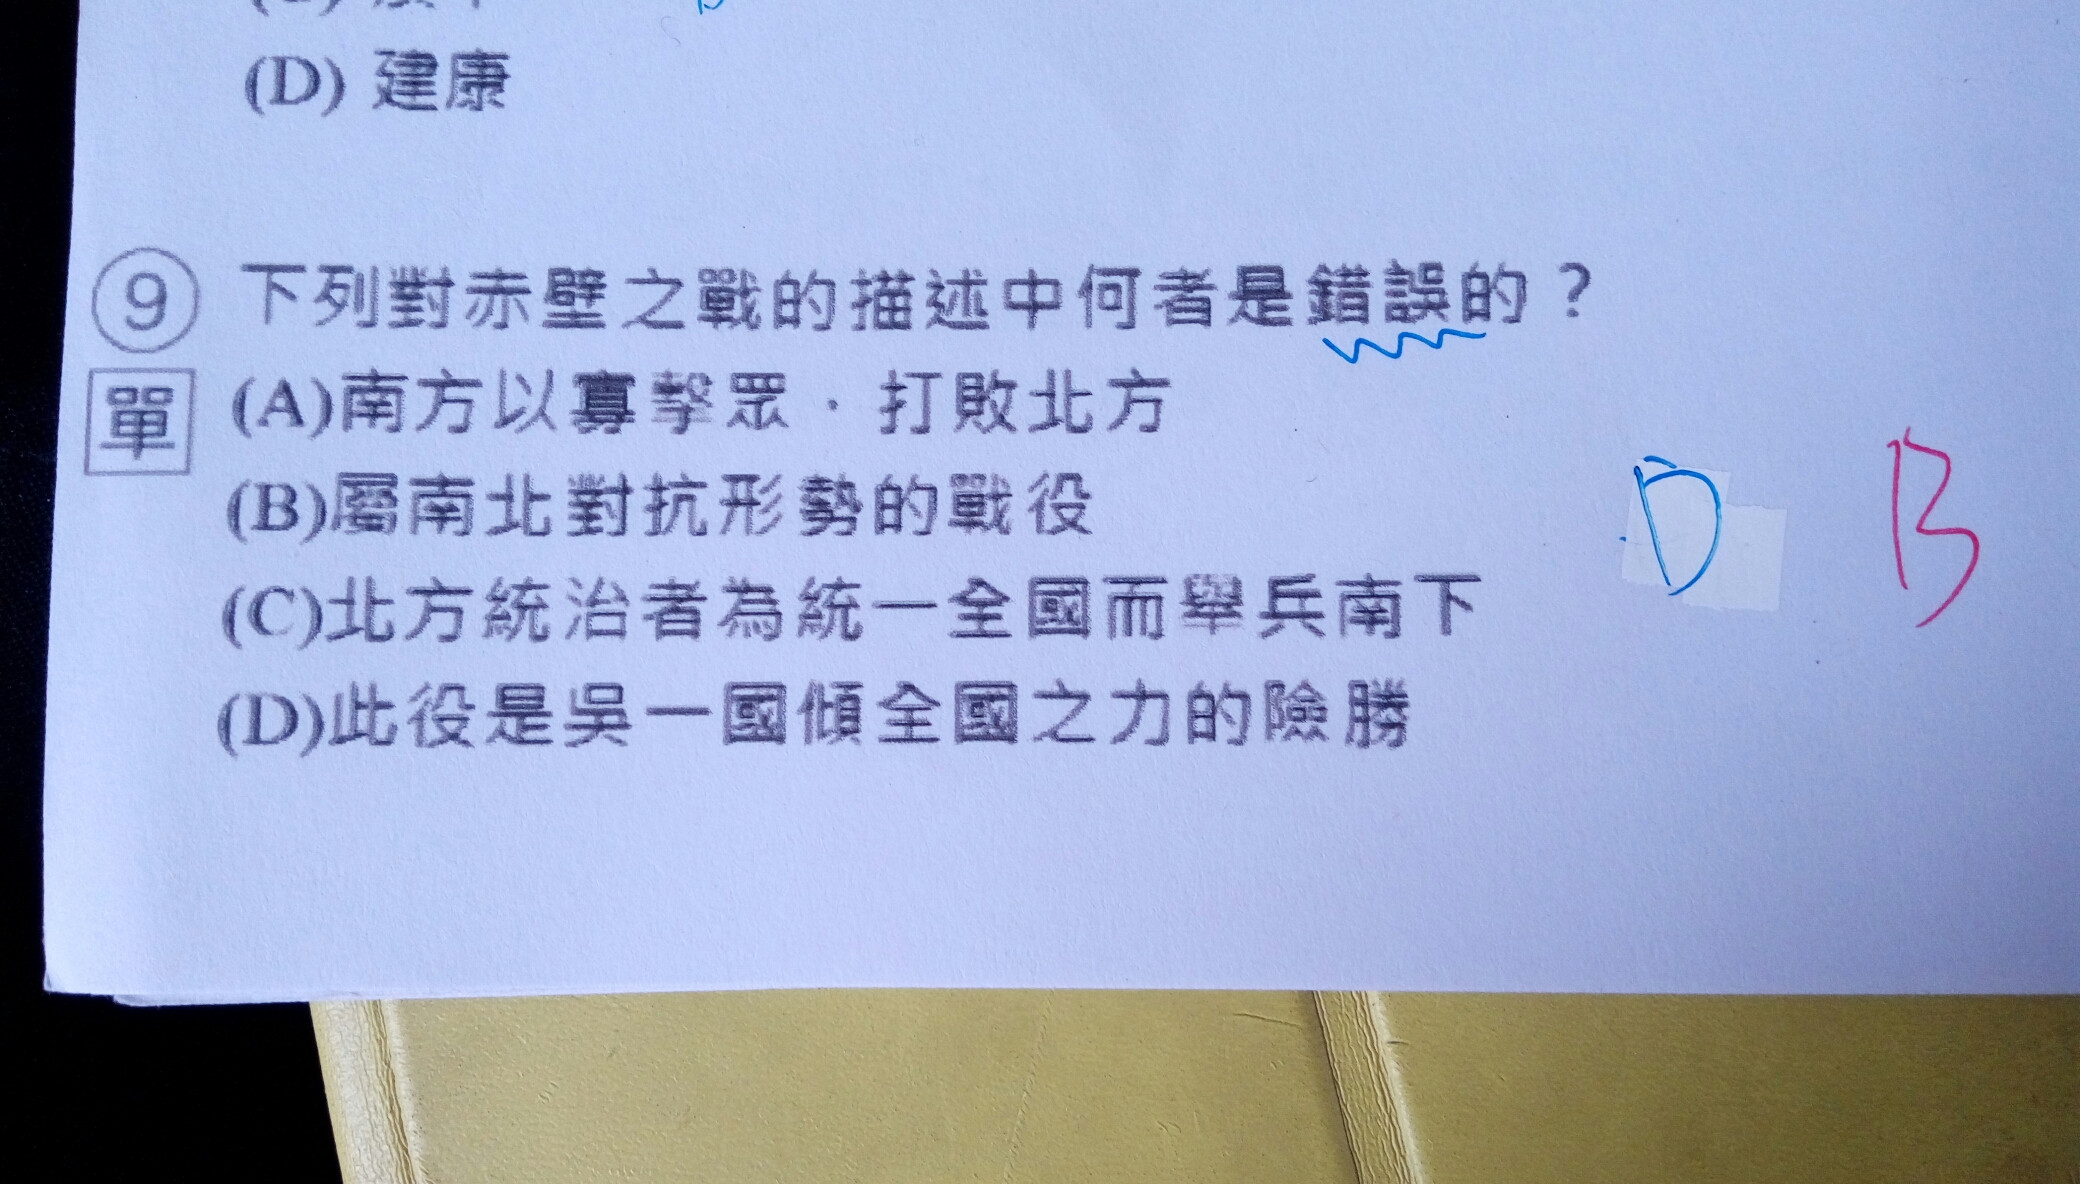 (D) 建康
9 下列對赤壁之戰的描述中何者是錯誤的？
單 (A)南方以寡擊眾．打敗北方
(B)屬南北對抗形勢的戰役
(C)北方統治者為統一全國而舉兵南下
(D)此役是吳一國傾全國之力的險勝
D B